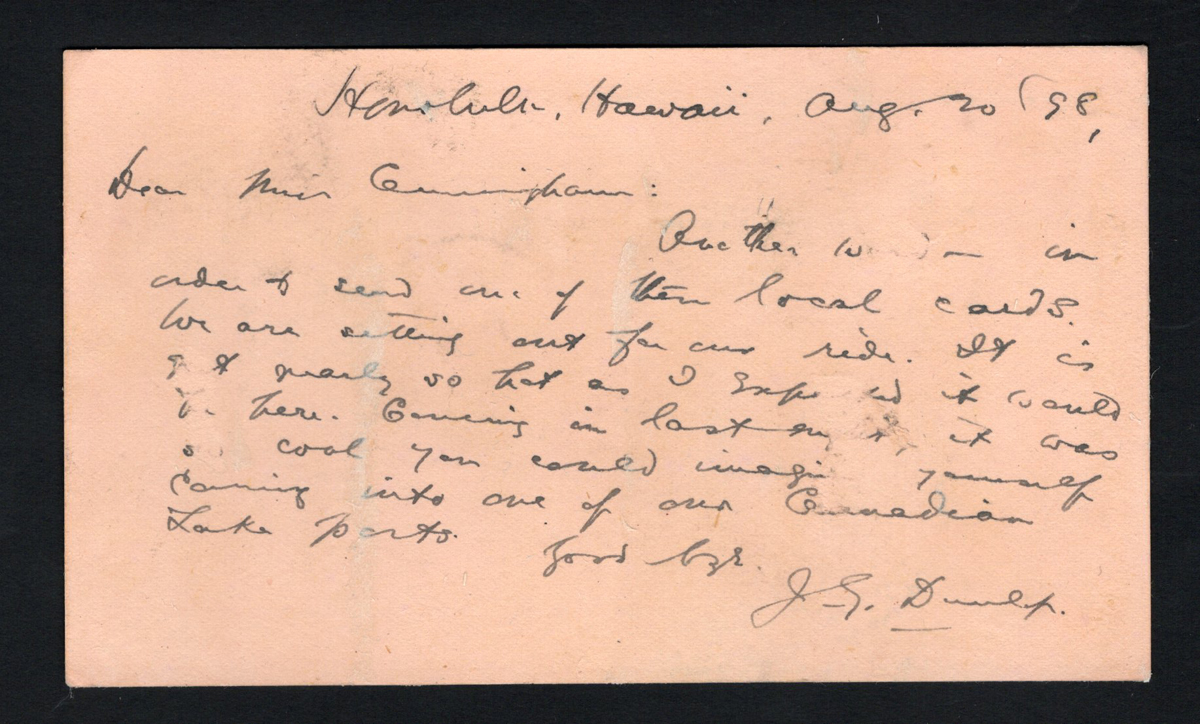 Honolulu, Hawaii, Aug. 20 '98,
Dear Miss Cunningham:
Another word in
order to send one of them local cards.
We are setting out for our ride. It is
not nearly so hot as I expected it would
be here. Coming in last night, it was
so cool you could imagine yourself
coming into one of our Canadian
Lake ports.
Good bye.
J. G. Dunlop.